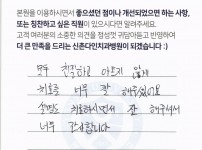 본원을 이용하시면서 좋으셨던 점이나 개선되었으면 하는 사항,
또는 칭찬하고 싶은 직원이 있으시다면 알려주세요.
고객 여러분의 소중한 의견을 정성껏 귀담아듣고 반영하여
더 큰 만족을 드리는 신촌다인치과병원이 되겠습니다 :)
모두 친절하고 아프지 않게
치료를 너무 잘 해주셨어요
설명도 치료하시면서 잘 해주셔서
너무 감사합니다